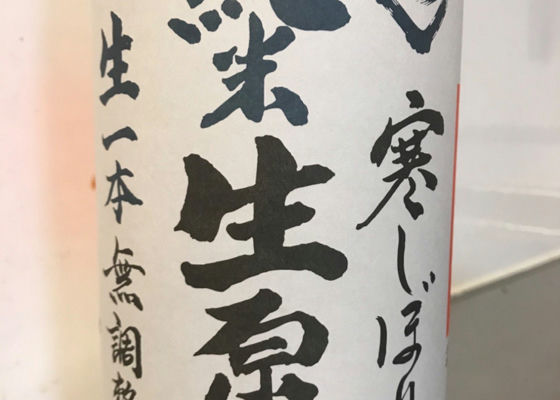 寒しぼり
純米生原
生一本無調整